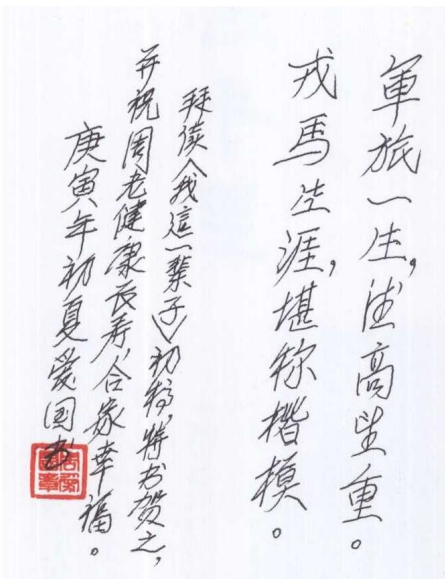 軍旅一生，德高望重。
戎馬生涯，堪称楷模。
拜读《我這一辈子》初稿，特书贺之，
并祝周老健康长寿，合家幸福。
庚寅年初夏爱国书